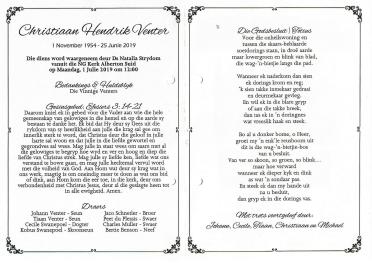 Christiaan Hendrik Venter
1 November 1954 - 25 Junie 2019
Die diens word waargeneem deur Ds Natalia Strydom
vanuit die NG Kerk Alberton Suid
op Maandag, 1 Julie 2019 om 12:00
Bedankings & Huldeblyk
Die Vinnige Venters
Gesinsgebed: Efesiërs 3:14-21
Daarom kniel ek in gebed voor die Vader aan wie die hele
gemeenskap van gelowiges in die hemel en op die aarde sy
bestaan te danke het. Ek bid dat Hy deur sy Gees uit die
rykdom van sy heerlikheid aan julle die krag sal gee om
innerlik sterk te word, dat Christus deur die geloof in julle
harte sal woon en dat julle in die liefde gewortel en
gegrondves sal wees. Mag julle in staat wees om saam met al
die gelowiges te begryp hoe wyd en ver en hoog en diep die
liefde van Christus strek. Mag julle sy liefde ken, liefde wat ons
verstand te bowe gaan, en mag julle heeltemal vervul word
met die volheid van God. Aan Hom wat deur sy krag wat in
ons werk, magtig is om oneindig meer te doen as wat ons bid
of dink, aan Hom kom die eer toe, in die kerk, deur ons
verbondenheid met Christus Jesus, deur al die geslagte heen tot
in alle ewigheid. Amen.
Draers
Johann Venter - Seun
Tiaan Venter - Seun
Cecile Swanepoel - Dogter
Kobus Swanepoel - Skoonseun
Jaco Schnetler - Broer
Peet du Plessis - Swaer
Charles Muller - Swaer
Bertie Benson - Neef
Die Godsbesluit | Totius
Voor die onheilswoning en
tussen die skaars-beblaarde
soetdorings staan, in droë aarde
maar lowergroen en blink van blad,
die wag-'n-bietjie langs die pad.
Wanneer ek nadertoe kom dan sien
ek dorings krom en reg;
'k sien takke inmekaar gedraai
en deurmekaar gevleg.
En wil ek in die blare gryp
of aan die takke breek,
dan sa ek in 'n doringnes
wat vreeslik haak en steek.
So al u donker bome, o Heer,
groei my 'n mik'le woudboom uit
dit is die wag-'n-bietjie-bos
van u besluit.
Van ver so skoon, so groen, so blink...
maar hoe verward
wanneer ek dieper kyk en dink
as wat 'n sondaar pas.
En steek ek dan my hande uit
na u besluit,
dan gryp ek in die dorings vas.
Met trots voortgeleef deur:
Johann, Cecile, Tiaan, Christiaan en Michael